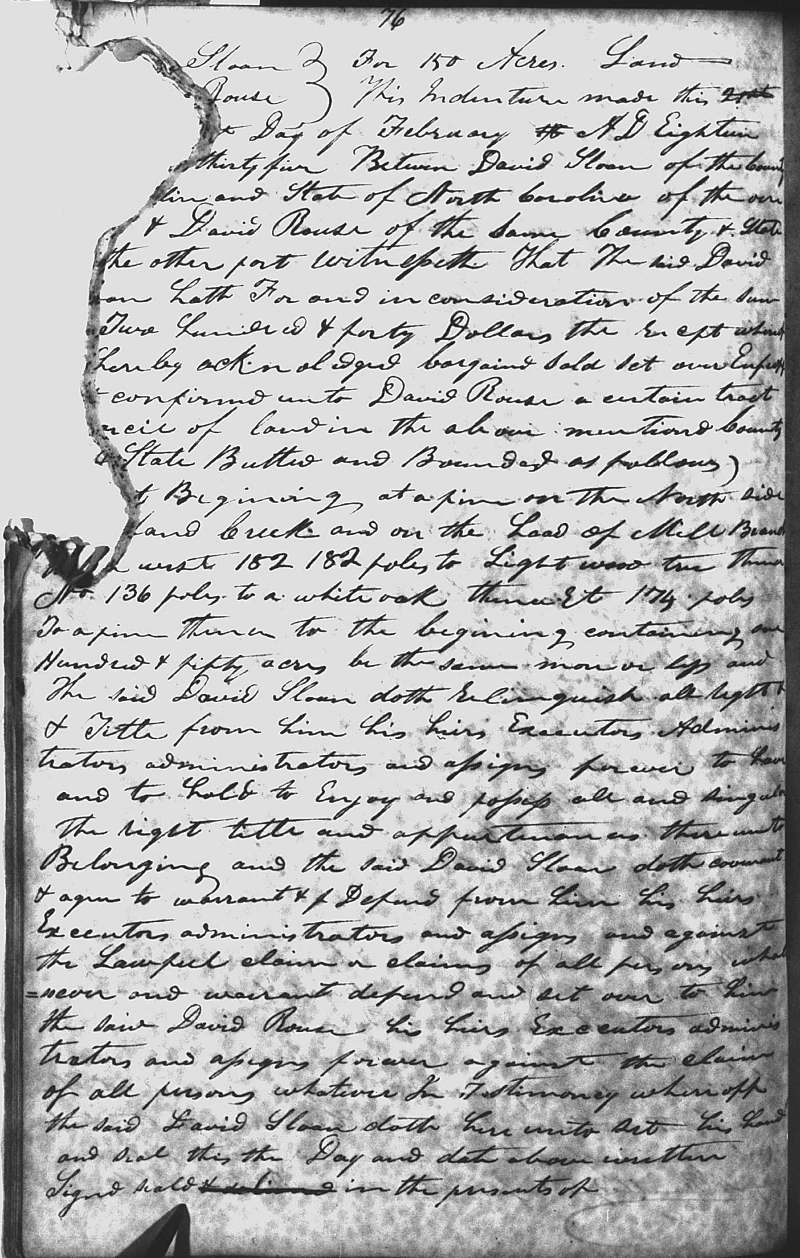 76
Sloan } For 150 Acres. Land
Rouse ) This Indenture made this
Day of February A D Eighteen
thirty five Between David Sloan of the County
lin and State of North Carolina of the one
& David Rouse of the Same County & State
the other part Witnesseth That The said David
oan hath For and in consideration of the sum
Two hundred & forty Dollars the recept where
hereby acknoledged bargaind sold set over
confirmd unto David Rouse a certain tract
rcil of land in the above mentiond County
& State Butted and Bounded as follows)
t Begining at a pine on the North side
land Creek and on the head of Mill Branch
west 182 182 poles to Light wood tree thence
No. 136 poles to a white oak thence Et 174 poles
To a pine thence to the begining containing one
Hundred & fifty acres be the same more or less and
The said David Sloan doth relinquish all right &
& Title from him his heirs Executors Adminis
trators administrators and assigns forever to have
and to hold to Enjoy and possess all and singular
the right title and appurtenances there unto
Belonging and the said David Sloan doth covenant
& agree to warrant & Defend from him his heirs
Executors administrators and assigns and against
the Lawfull claim or claims of all persons what
=soever and warrant defend and set over to him
the said David Rouse his heirs Executors adminis
trators and assigns forever against the claim
of all persons whatever In Testimoney where off
the said David Sloan doth here unto set his hand
and seal this the Day and date above written
Signd seald & deliverd in the presents of